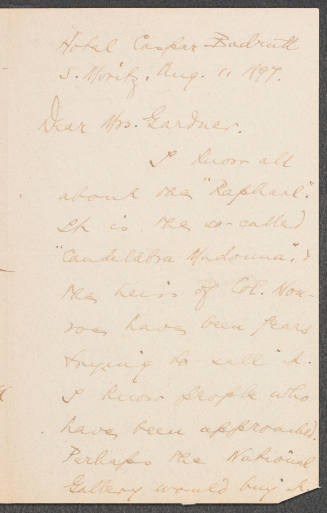 Hotel Caspar-Badrutt
S. Moritz, Aug. 11 1897.
Dear Mrs. Gardner.
I know all
about the "Raphael".
It is the so-called
"Candelabra Madonna", &
the heirs of Col. Mon-
roe, have been years
trying to sell it.
I know people who
have been approached.
Perhaps the National
Gallery would buy it